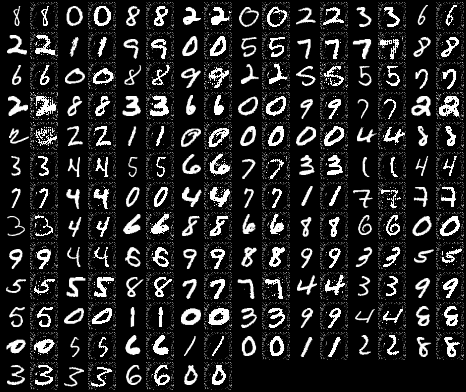 8 8 0 0 8 8 2 2 0 0 2 2 3 3 6 6
2 2 1 1 9 9 0 0 5 5 7 7 7 7 8 8
6 6 0 0 8 8 9 9 2 2 5 5 5 5 7 7
2 2 8 8 3 3 6 6 0 0 9 9 7 7 2 2
2 2 2 2 1 1 0 0 0 0 0 0 4 4 8 8
3 3 4 4 5 5 6 6 7 7 3 3 1 1 4 4
7 7 4 4 0 0 4 4 7 7 1 1 7 7 7 7
3 3 4 4 6 6 8 8 6 6 8 8 6 6 0 0
9 9 4 4 6 6 9 9 8 8 9 9 3 3 5 5
5 5 5 5 8 8 7 7 7 7 4 4 3 3 9 9
5 5 0 0 1 1 0 0 3 3 9 9 4 4 8 8
0 0 5 5 6 6 1 1 0 0 1 1 2 2 8 8
3 3 3 3 6 6 0 0